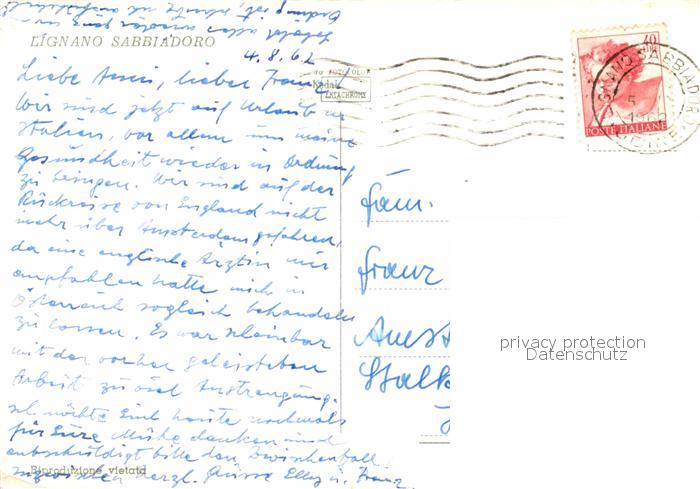 LIGNANO SABBIADORO
4.8.62
Liebe Anni, lieber Franz,
Wir sind jetzt auf Urlaub in
Italien, vor allem um meine
Gesundheit wieder in Ordnung
zu bringen. Wir sind auf der
Rückreise von England nicht
mehr über Amsterdam gefahren,
da eine englische Ärztin mir
empfohlen hatte mich in
Österreich sogleich behandeln
zu lassen. Es war scheinbar
mit der vorher geleisteten
Arbeit zu viel Anstrengung.
Ich möchte Euch heute nochmals
für Eure Mühe danken und
entschuldigt bitte den Zwischenfall.
Inzwischen herzl. Grüsse Elly u. Franz
Riproduzione vietata
da FOTOCOLOR
Kodak
EKTACHROME
40
POSTE ITALIANE
LIGNANO SABBIADORO
5
1962
UDINE
Fam.
Franz
Amst
Stalk
privacy protection
Datenschutz